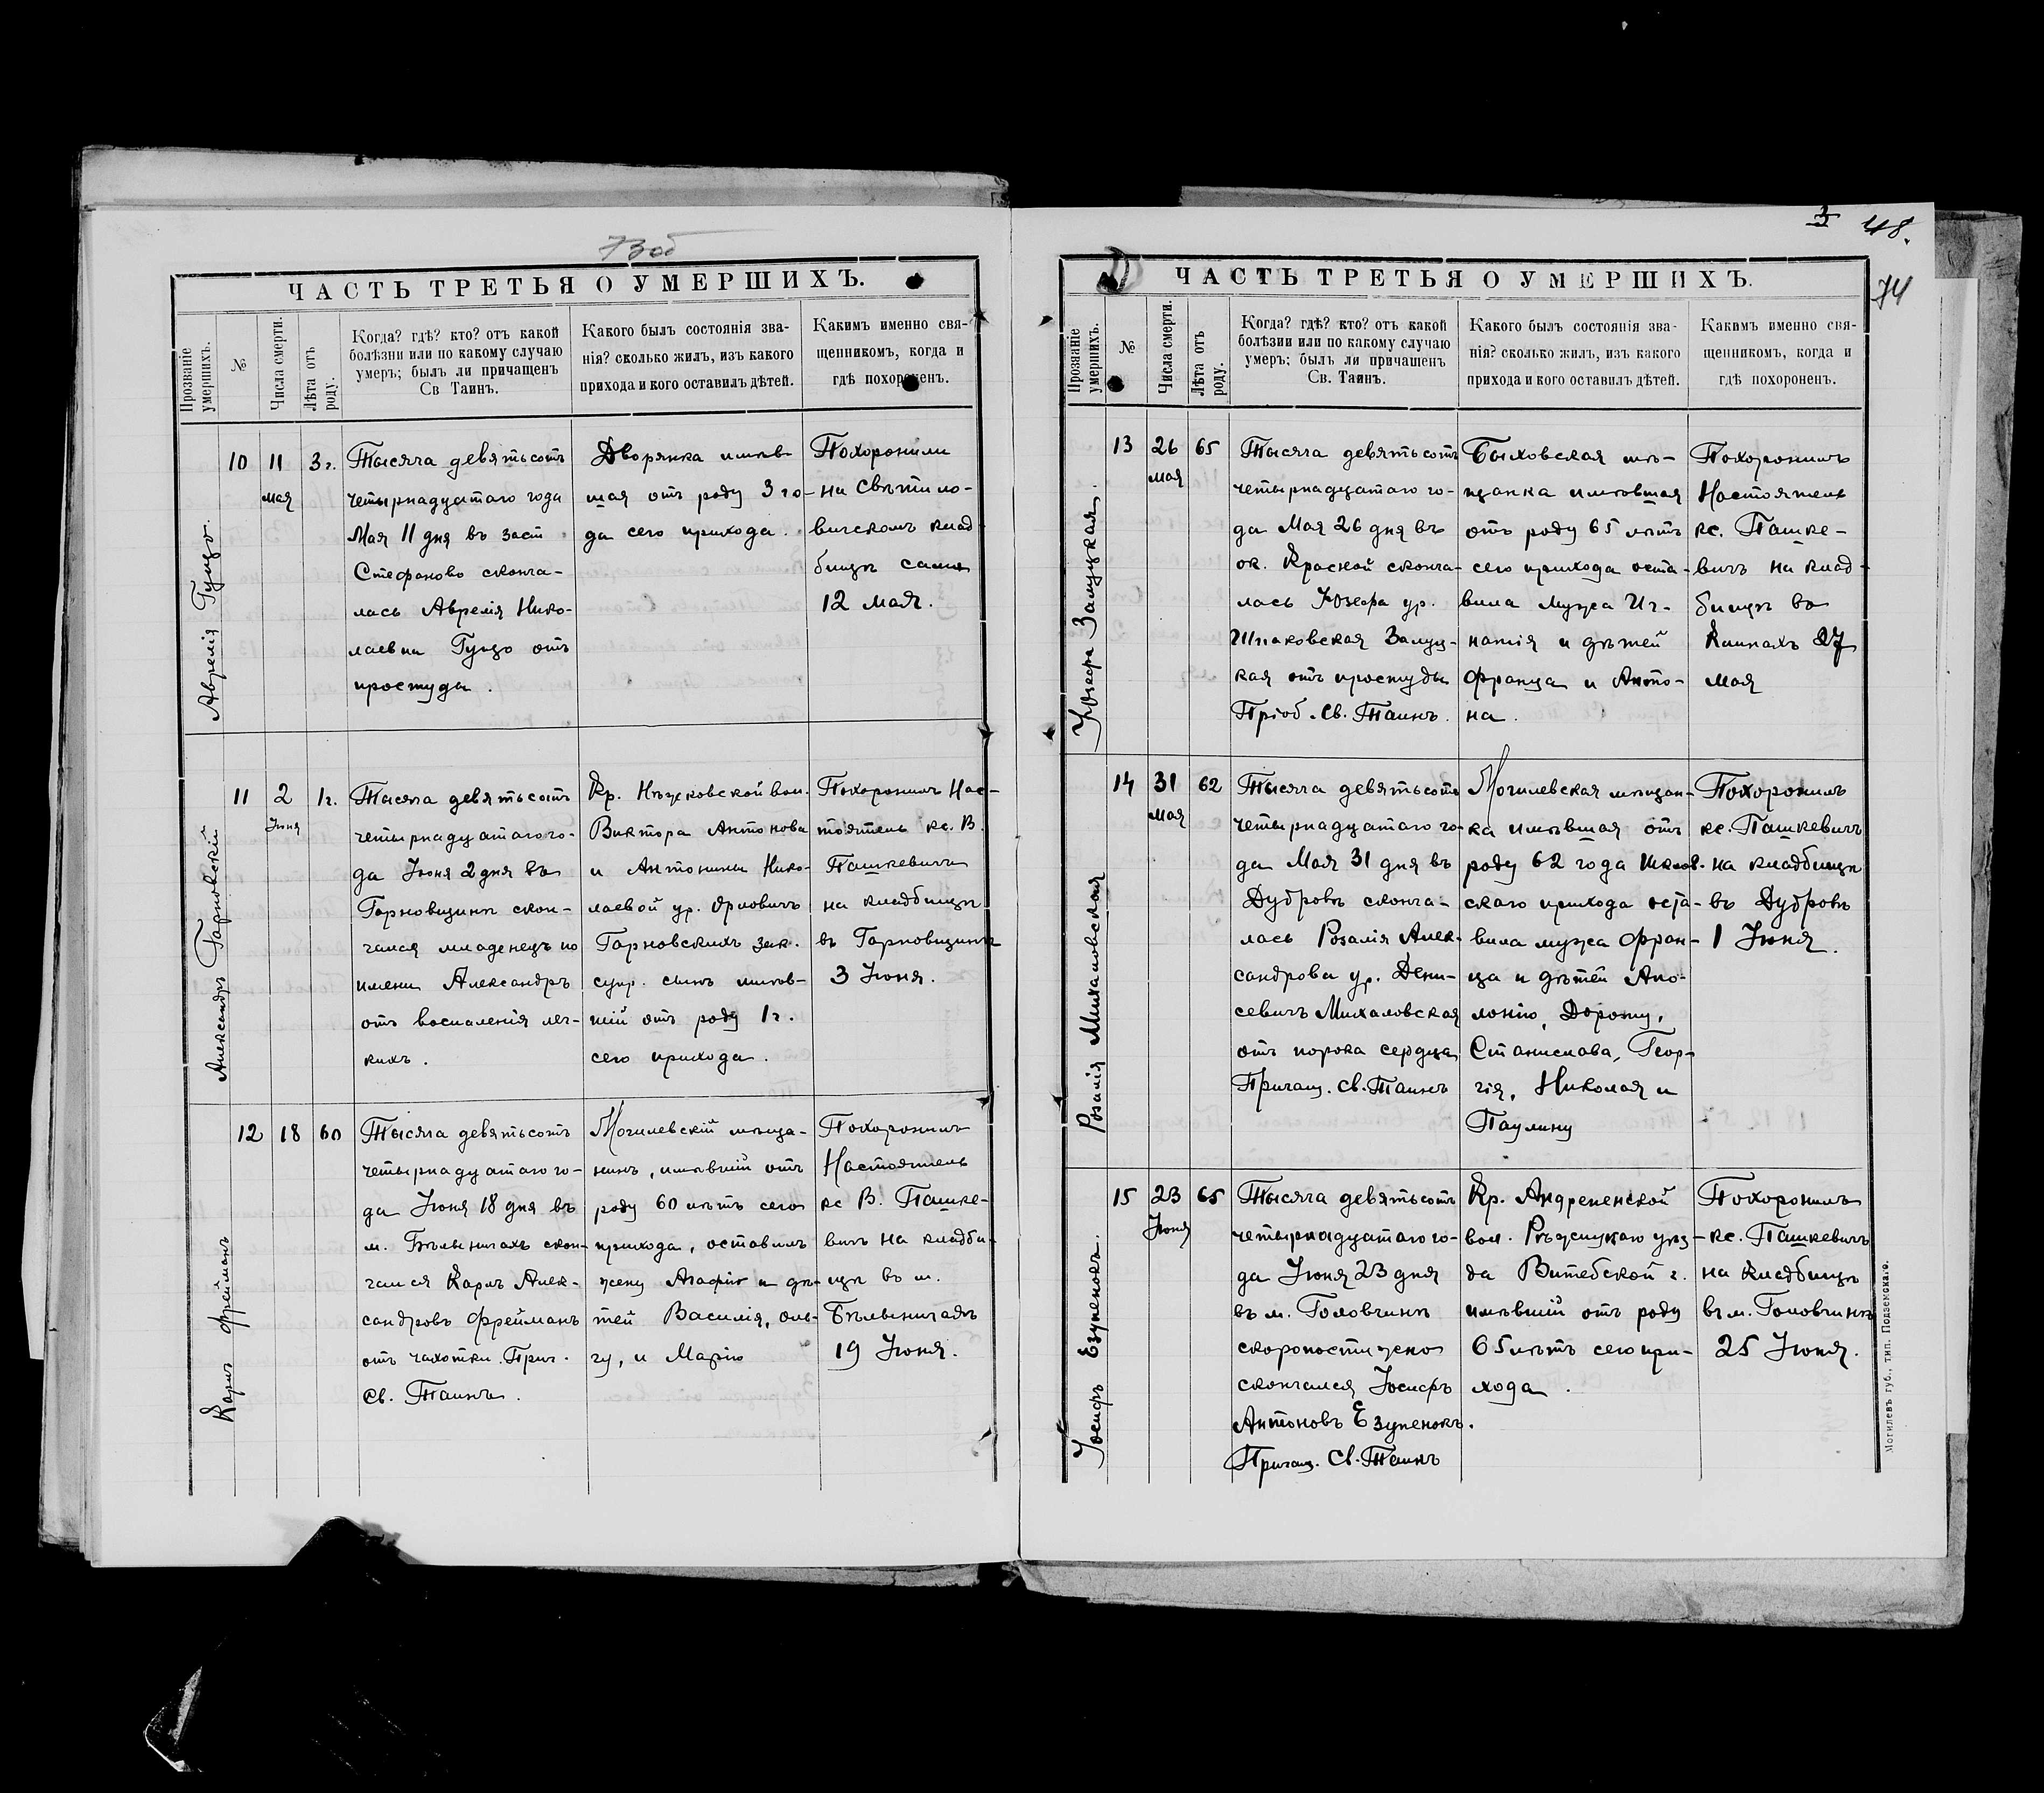 73об
ЧАСТЬ ТРЕТЬЯ О УМЕРШИХЪ.
Прозваніе умершихъ.
№
Числа смерти.
Лѣта отъ роду.
Когда? гдѣ? кто? отъ какой
болѣзни или по какому случаю
умеръ; былъ ли причащенъ
Св Таинъ.
Какого былъ состоянія зва-
нія? сколько жилъ, изъ какого
прихода и кого оставилъ дѣтей.
Каким именно свя-
щенникомъ, когда и
гдѣ похороненъ.
Аврелія Гуцо
10
11
мая
3 г.
Тысяча девятьсотъ
четырнадцатаго года
Мая 11 дня въ заст
Стефаново сконча-
лась Аврелія Нико-
лаевна Гуцо отъ
простуда.
Дворянка имѣв-
шая отъ роду 3 го-
да сего прихода.
Похоронили
на Свѣтило-
вичскомъ клад
бищѣ сами
12 мая.
Александръ Гарновскій
11
2
Іюня
1г.
Тысяча девятьсотъ
четырнадцатаго го-
да Іюня 2 дня въ
Гарновщинѣ скон-
чался младенецъ по
имени Александръ
отъ воспаленія лег-
кихъ.
Кр. Нѣжковской вол.
Виктора Антонова
и Антонины Нико-
лаевой ур. Орловичъ
Гарновскихъ зак.
супр. сынъ имѣв-
шій отъ роду 1 г.
сего прихода.
Похоронилъ Нас-
тоятель кс. В.
Пашкевичъ
на кладбищѣ
въ Гарновщинѣ
3 Іюня.
Карлъ Фрейманъ
12
18
60
Тысяча девятьсотъ
четырнадцатаго го-
да Іюня 18 дня въ
м. Бѣлыничахъ скон-
чался Карлъ Алек-
сандровъ Фрейманъ
отъ чахотки. Прич.
Св. Таинъ.
Могилевскій мѣща-
нинъ, имѣвшій отъ
роду 60 лѣтъ сего
прихода, оставилъ
жену Агафію и дѣ-
тей Василія, Оль-
гу, и Марію
Похоронилъ
Настоятель
кс В. Пашке-
вичъ на кладби-
щѣ въ м.
Бѣлыничахъ
19 Іюня.
3 48.
74
ЧАСТЬ ТРЕТЬЯ О УМЕРШИХЪ.
Прозваніе умершихъ.
№
Числа смерти.
Лѣта отъ роду.
Когда? гдѣ? кто? отъ какой
болѣзни или по какому случаю
умеръ; былъ ли причащенъ
Св. Таинъ.
Какого былъ состоянія зва-
нія? сколько жилъ, изъ какого
прихода и кого оставилъ дѣтей.
Каким именно свя-
щенникомъ, когда и
гдѣ похороненъ.
Юзефа Залуцкая.
13
26
мая
65
Тысяча девятьсотъ
четырнадцатаго го-
да Мая 26 дня въ
ок. Красной сконча-
лась Юзефа ур.
Шпаковская Залуц-
кая отъ простуды
Пріоб. Св. Таинъ.
Быховская мѣ-
щанка имѣвшая
отъ роду 65 лѣтъ
сего прихода оста-
вила мужа Иг-
натія и дѣтей
Франца и Анто-
на.
Похоронилъ
Настоятель
кс. Пашке-
вичъ на клад-
бищѣ во
27
мая
Розалія Михаловская
14
31
мая
62
Тысяча девятьсотъ
четырнадцатаго го-
да Мая 31 дня въ
Дубровѣ сконча-
лась Розалія Алек-
сандрова ур. Дени-
севичъ Михаловская
отъ порока сердца
Причащ. Св. Таинъ
Могилевская мѣщан-
ка имѣвшая отъ
роду 62 года Шклов-
скаго прихода оста-
вила мужа Фран-
ца и дѣтей Апо-
лонію, Дороту,
Станислава, Геор-
гія, Николая и
Паулину
Похоронилъ
кс. Пашкевичъ
на кладбищѣ
въ Дубровѣ
1 Іюня.
Іосифъ Езупенокъ.
15
23
Іюня
65
Тысяча девятьсотъ
четырнадцатаго го-
да Іюня 23 дня
въ м. Головчинѣ
скоропостижно
скончался Іосифъ
Антоновъ Езупенокъ.
Причащ. Св. Таинъ
Кр. Андрепенской
вол. Рѣжицкаго уѣз-
да Витебской г.
имѣвшій отъ роду
65 лѣтъ сего при-
хода.
Похоронилъ
кс. Пашкевичъ
на кладбищѣ
въ м. Головчинѣ
25 Іюня.
Могилевъ губ., тип. Подземскаго.